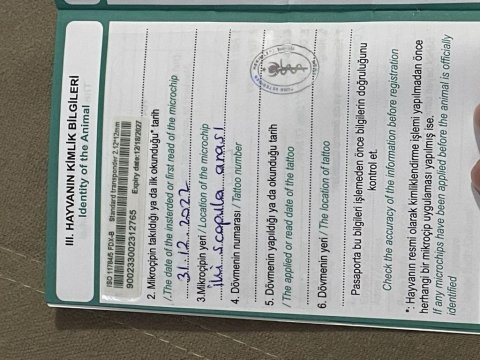 III. HAYVANIN KİMLİK BİLGİLERİ
Identity of the Animal
ISO 11784/5 FDX-B Standard transponder 2.12*12mm
900233002312765 Expiry date:12/18/2027
2. Mikroçipin takıldığı ya da ilk okunduğu* tarih
/.The date of the insterded or first read of the microchip
31.12.2022
3.Mikroçipin yeri / Location of the microchip
iki scapula arası
4. Dövmenin numarası / Tattoo number
5. Dövmenin yapıldığı ya da okunduğu tarih
/ The applied or read date of the tattoo
6. Dövmenin yeri / The location of tattoo
Pasaporta bu bilgileri işlemeden önce bilgilerin doğruluğunu
kontrol et.
Check the accuracy of the information before registration
*: Hayvanın resmi olarak kimliklendirme işlemi yapılmadan önce
herhangi bir mikroçip uygulaması yapılmış ise.
If any microchips have been applied before the animal is officially
identified